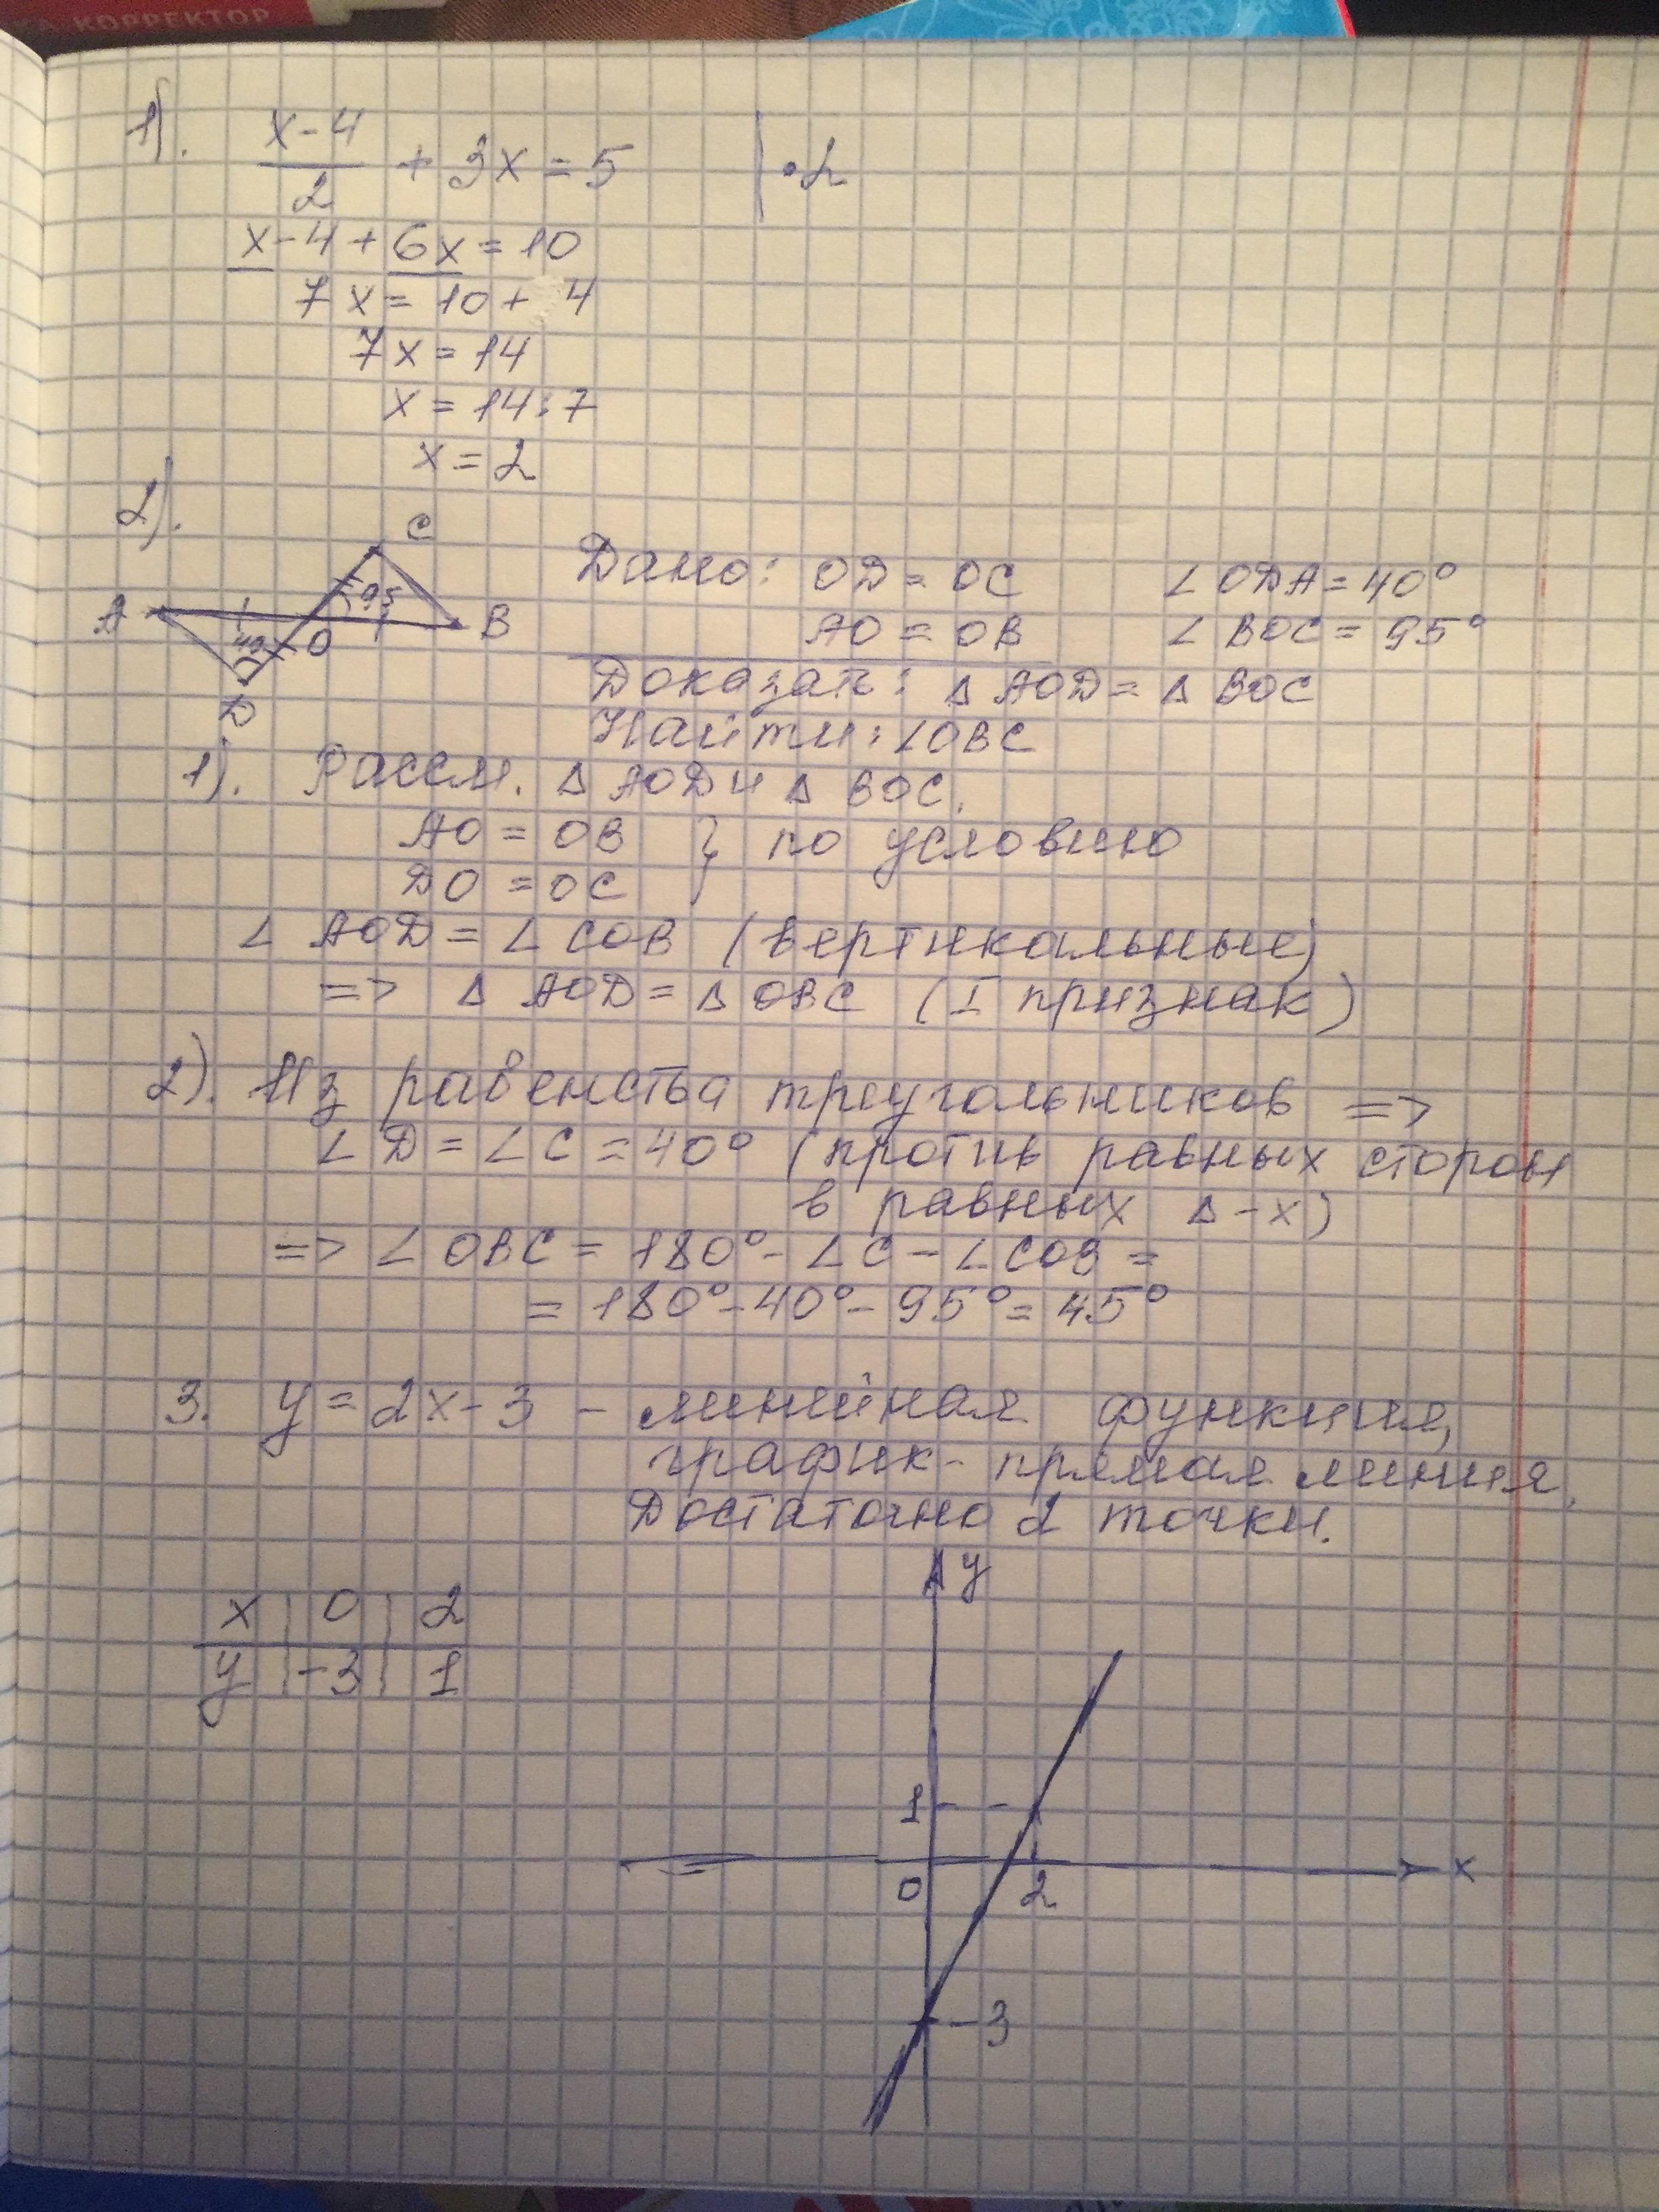 КА КОРРЕКТОР
1).
x-4
2
+ 3x = 5 | • 2
x-4+6x=10
7x = 10 + 4
7x = 14
x = 14:7
x = 2
2).
C
A 95 B
40 O
D
Дано: OD = OC ∠ODA = 40°
AO = OB ∠BOC = 95°
Доказать: Δ AOD = Δ BOC
Найти: ∠OBC
1). Рассм. Δ AOD и Δ BOC.
AO = OB } по условию
DO = OC
∠ AOD = ∠ COB (вертикальные)
=> Δ AOD = Δ OBC (I признак)
2). Из равенства треугольников =>
∠ D = ∠ C = 40° (против равных сторон
в равных Δ-х)
=> ∠ OBC = 180° - ∠ C - ∠ COB =
= 180° - 40° - 95° = 45°
3. y = 2x - 3 - линейная функция,
график - прямая линия.
Достаточно 2 точки.
y
x | 0 | 2
y | -3 | 1
1
0 2 x
-3